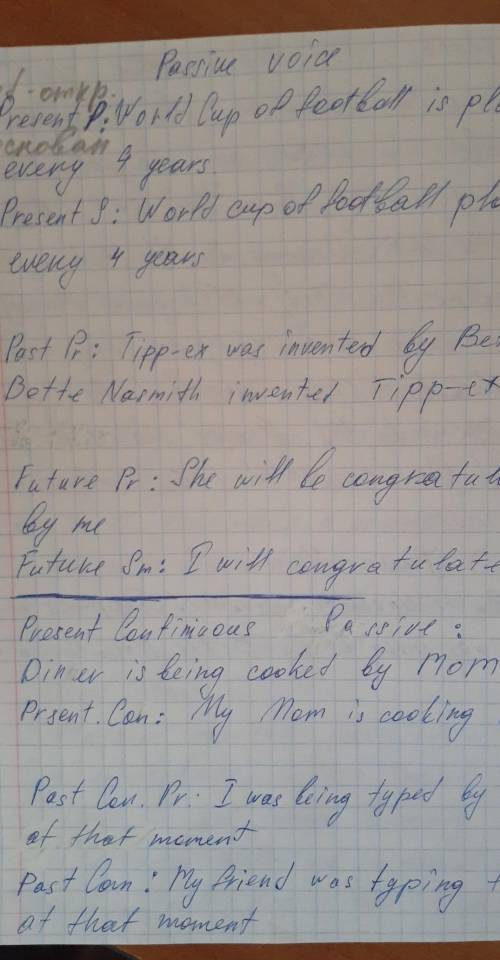 Passive voice
-откр.
Present P: World Cup of football is pla
основан
every 4 years.
Present S: World cup of football pla
every 4 years
Past Pr: Tipp-ex was invented by Be
Bette Nasmith invented Tipp-ex
Future Pr: She will be congratul
by me
Future Sm: I will congratulate
Present Continuous Passive:
Diner is being cooked by Mom
Prsent. Con: My Mom is cooking
Past Con. Pr: I was being typed by
at that moment
Past Con: My friend was typing t
at that moment